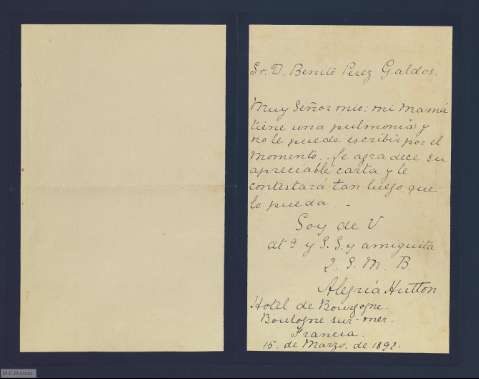 Sr. D. Benito Perez Galdos.
Muy Señor mio: mi mamá
tiene una pulmonia y
no le puede escribir por el
momento. Le agradece su
apreciable carta y le
contestará tan luego que
lo pueda. -
Soy de V
at ª y S. S. y amiguita
Q. S. M. B
Alegría Hutton
Hotel de Bourgogne.
Boulogne sur-mer.
Francia.
15. de Marzo. de 1892.